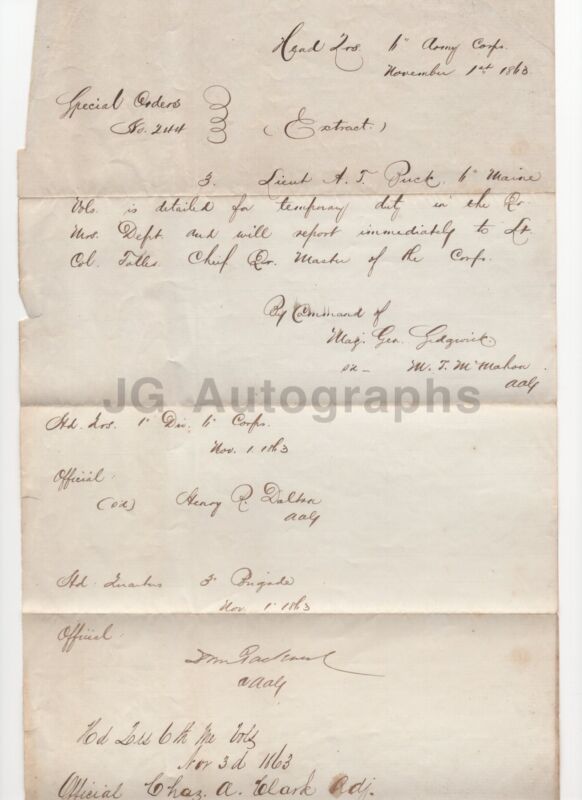 Head Qrs. 6" Army Corps.
November 1st 1863.
Special Orders
No. 244
(Extract.)
3. Lieut A. T. Buck, 6" Maine
Vols. is detailed for temporary duty in the Qr.
Mrs. Dept. and will report immediately to Lt.
Col. Tolles. Chief Qr. Master of the Corps.
By Command of
Maj. Gen. Sedgwick.
sd - M. T. McMahon
AAG
JG Autographs
Hd. Qrs. 1" Div. 6" Corps.
Nov. 1. 1863
Official.
(sd) Henry R. Dalton
AAG
Hd. Quarters 3" Brigade
Nov. 1" 1863
Official.
AAAG
Hd Qrs 6th Me Vols
Nov 3d 1863
Official Chaz. A. Clark Adj.